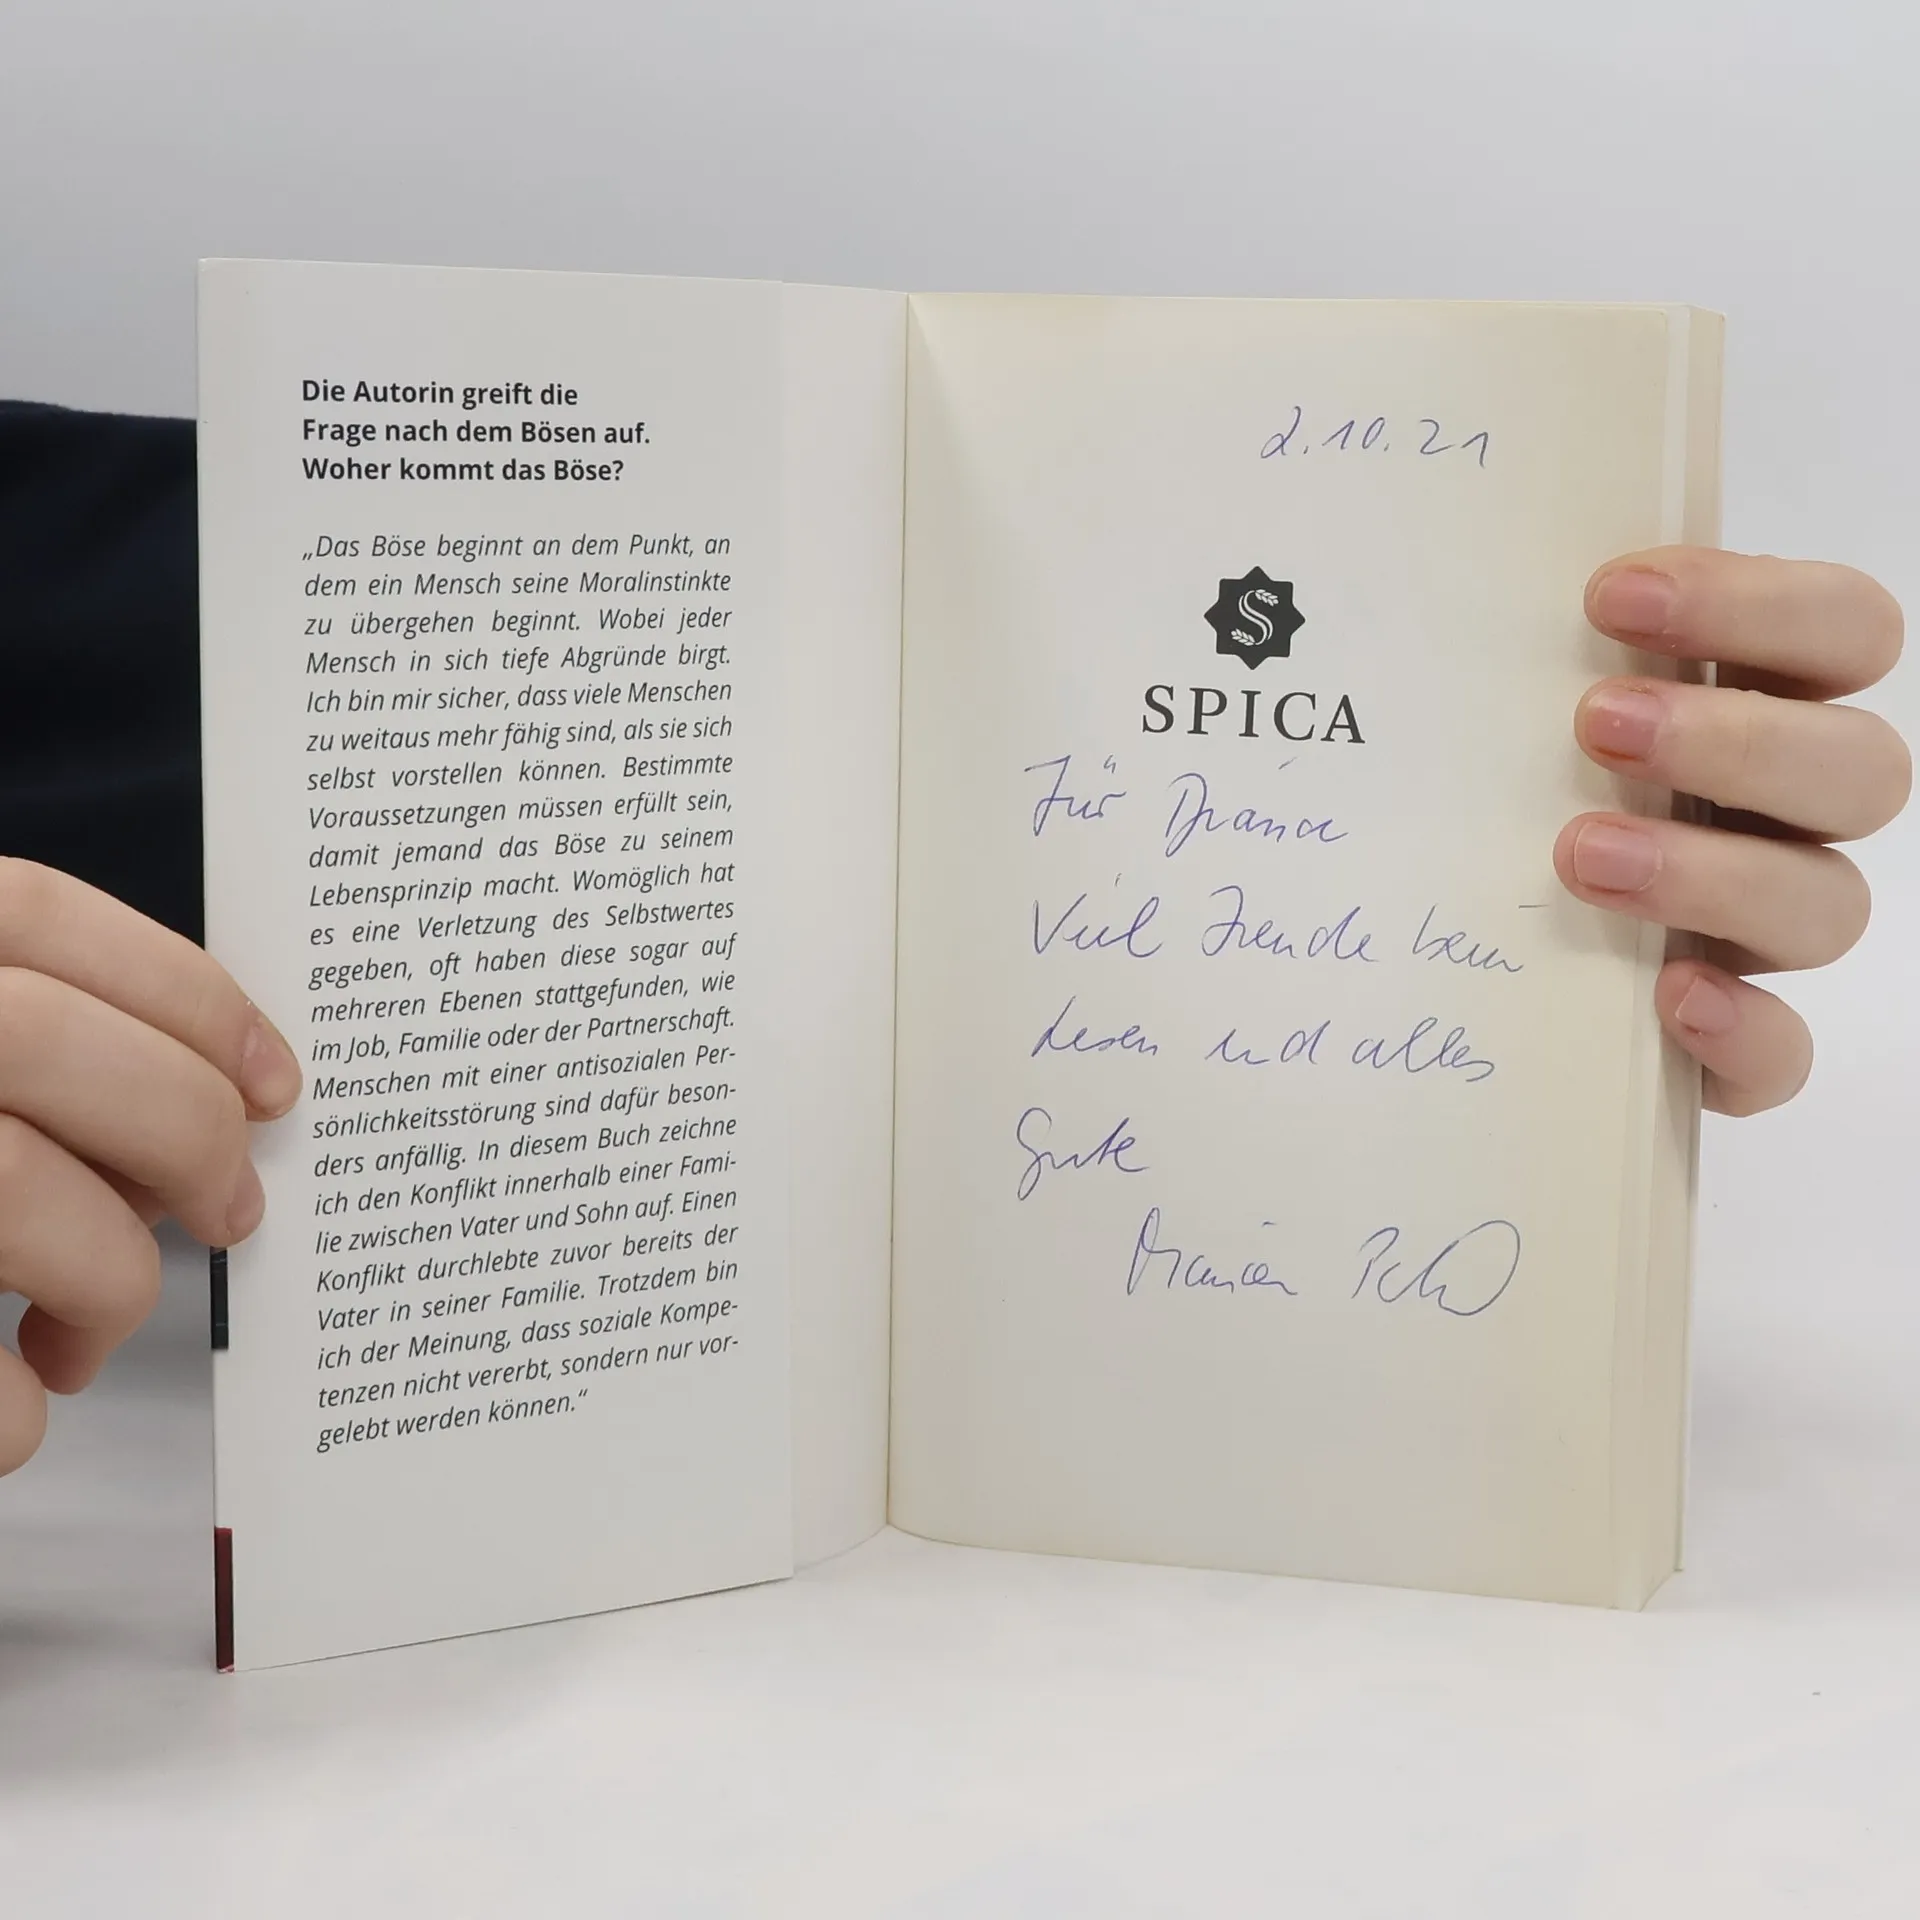 Die Autorin greift die
Frage nach dem Bösen auf.
Woher kommt das Böse?
„Das Böse beginnt an dem Punkt, an
dem ein Mensch seine Moralinstinkte
zu übergehen beginnt. Wobei jeder
Mensch in sich tiefe Abgründe birgt.
Ich bin mir sicher, dass viele Menschen
zu weitaus mehr fähig sind, als sie sich
selbst vorstellen können. Bestimmte
Voraussetzungen müssen erfüllt sein,
damit jemand das Böse zu seinem
Lebensprinzip macht. Womöglich hat
es eine Verletzung des Selbstwertes
gegeben, oft haben diese sogar auf
mehreren Ebenen stattgefunden, wie
im Job, Familie oder der Partnerschaft.
Menschen mit einer antisozialen Per-
sönlichkeitsstörung sind dafür beson-
ders anfällig. In diesem Buch zeichne
ich den Konflikt innerhalb einer Fami-
lie zwischen Vater und Sohn auf. Einen
Konflikt durchlebte zuvor bereits der
Vater in seiner Familie. Trotzdem bin
ich der Meinung, dass soziale Kompe-
tenzen nicht vererbt, sondern nur vor-
gelebt werden können.“
2.10.21
S
SPICA
Für
Viel Freude beim
Lesen und alles
Gute